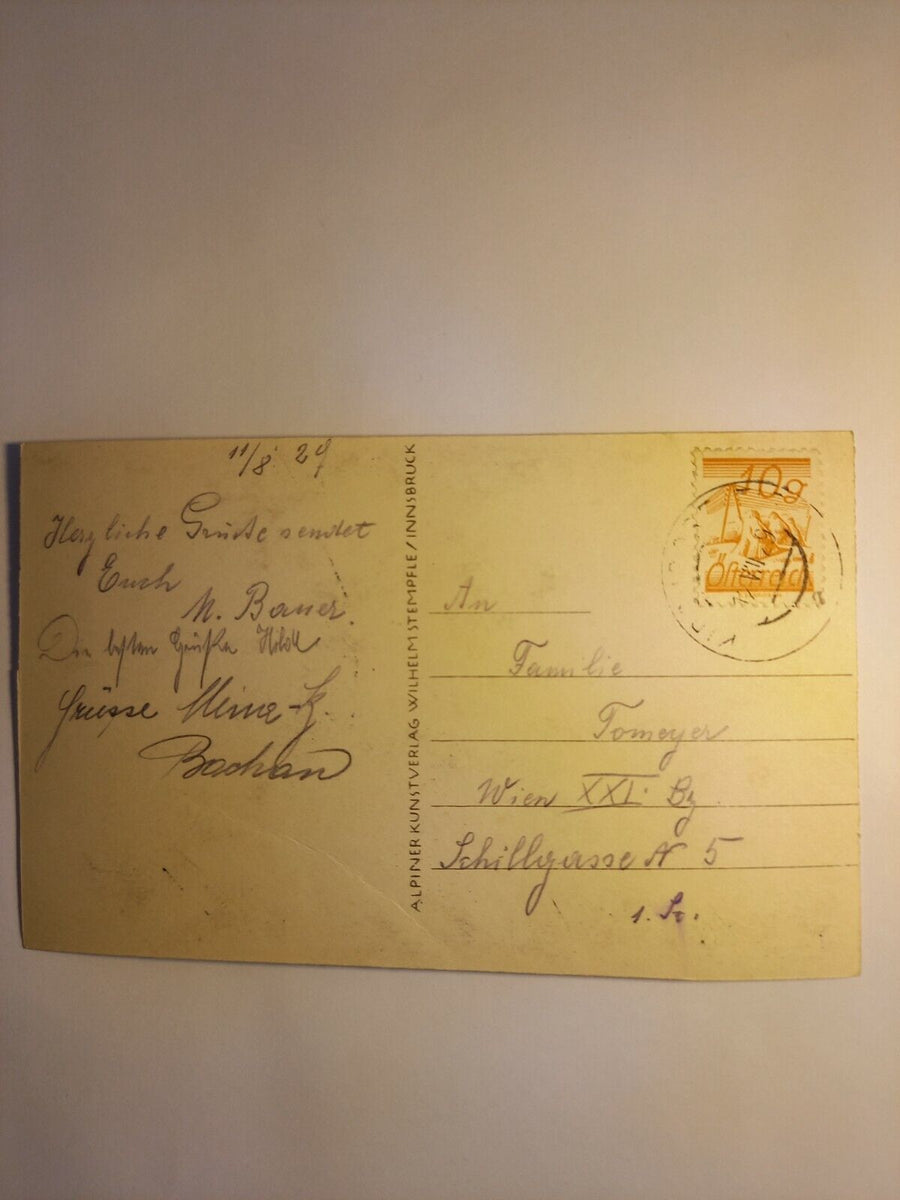 11/8 29
Herzliche Grüße sendet
Euch
M. Bauer.
Die besten Grüße Hilde
Grüsse
Bachan
ALPINER KUNSTVERLAG WILHELM STEMPFLE / INNSBRUCK
10g
Österreich
An
Familie
Tomeyer
Wien XXI. Bz
Schillgasse N 5
1. St.